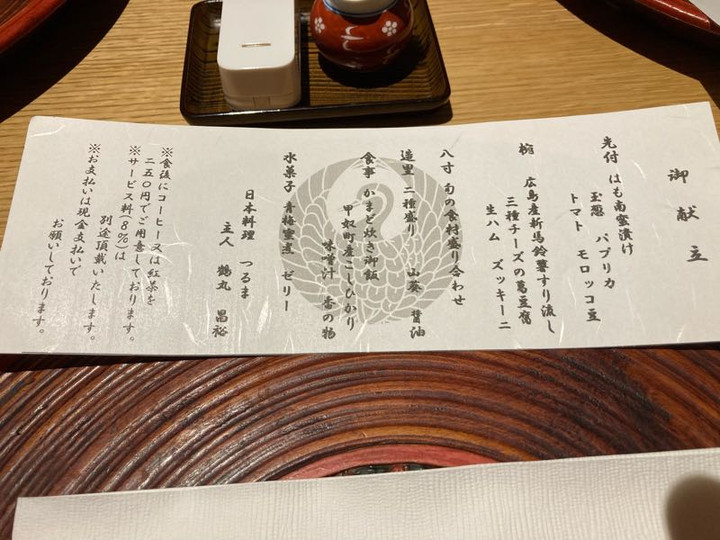 御献立
先付 はも南蛮漬け
玉葱 パプリカ
トマト モロッコ豆
椀 広島産新馬鈴薯すり流し
三種チーズの葛豆腐
生ハム ズッキーニ
八寸 旬の食材盛り合わせ
造里 二種盛り 山葵 醤油
食事 かまど炊き御飯
甲奴町産こしひかり
味噌汁 香の物
水菓子 青梅蜜煮 ゼリー
日本料理 つるま
主人 鶴丸 昌裕
※食後にコーヒー又は紅茶を
二五〇円でご用意しております。
※サービス料(8%)は
別途頂戴いたします。
※お支払いは現金支払いで
お願いしております。